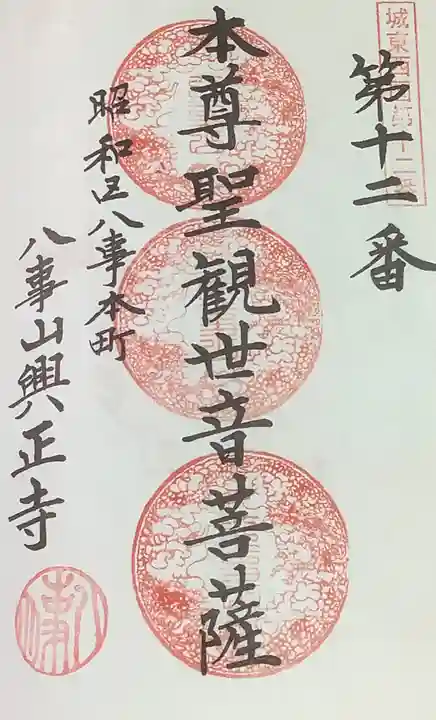 城東西国第十二番
第十二番
本尊聖観世音菩薩
昭和区八事本町
八事山興正寺
八事